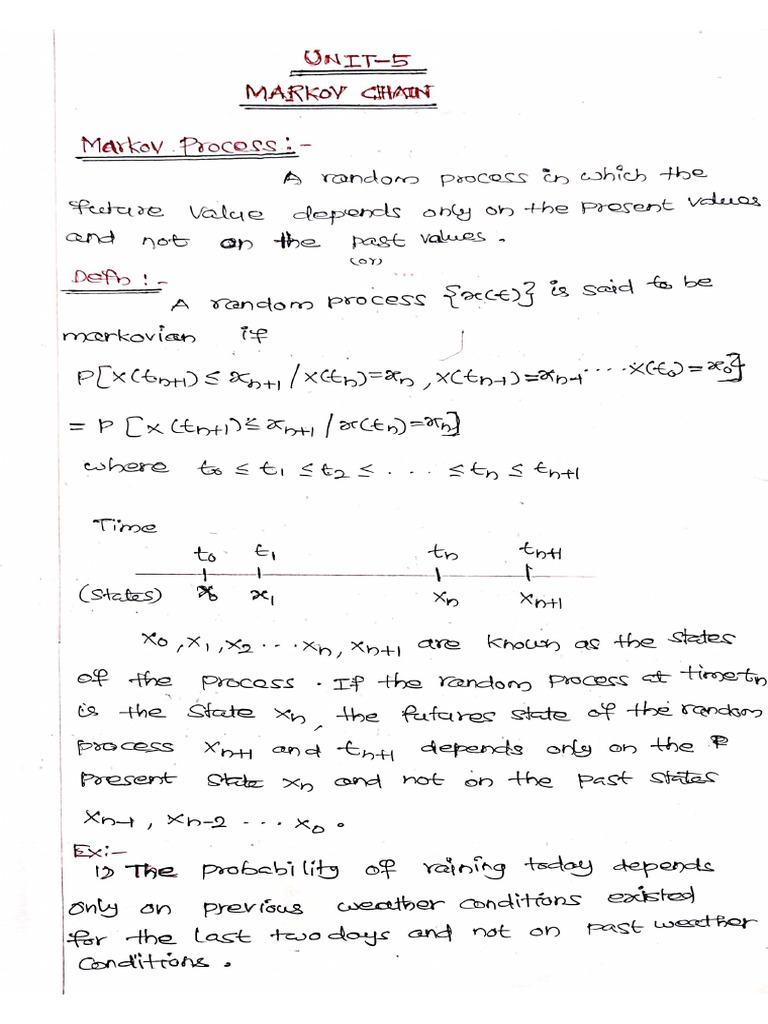 UNIT-5
MARKOV CHAIN
Markov Process:-
A random process in which the
future value depends only on the present values
and not on the past values.
(or)
Defn:-
A random process {x(t)} is said to be
markovian if
P[X(tn+1) ≤ xn+1 / X(tn)=xn, X(tn-1)=xn-1 .... X(t0)=x0]
= P [X(tn+1) ≤ xn+1 / x(tn)=xn]
where t0 ≤ t1 ≤ t2 ≤ ... ≤ tn ≤ tn+1
Time
t0 t1 tn tn+1
(States) x0 x1 xn xn+1
x0, x1, x2 ... xn, xn+1 are known as the states
of the process. If the random process at time tn
is the State xn, the futures state of the random
process xn+1 and tn+1 depends only on the P
present state xn and not on the past states
xn-1, xn-2 ... x0.
Ex:-
1) The probability of raining today depends
only on previous weather conditions existed
for the last two days and not on past weather
conditions.